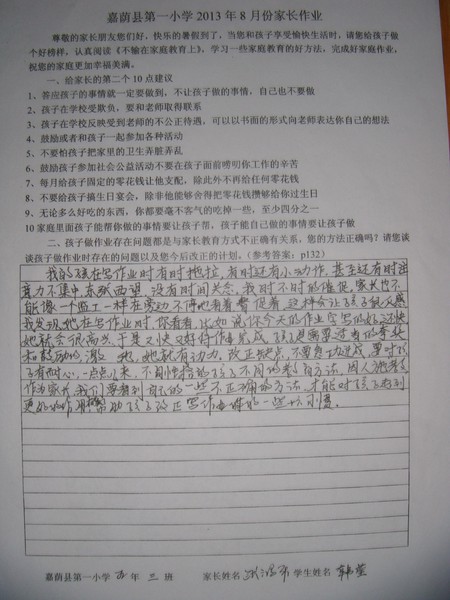 嘉荫县第一小学 2013 年 8 月份家长作业
尊敬的家长朋友您们好，快乐的暑假到了，当您和孩子享受愉快生活时，请您给孩子做
个好榜样，认真阅读《不输在家庭教育上》，学习一些家庭教育的好方法，完成好家庭作业，
祝您的家庭更加幸福美满。
一、给家长的第二个 10 点建议
1、答应孩子的事情就一定要做到，不让孩子做的事情，自己也不要做
2、孩子在学校受欺负，要和老师取得联系
3、孩子在学校反映受到老师的不公正待遇，可以以书面的形向老师表达你自己的想法
4、鼓励或者和孩子一起参加各种活动
5、不要怕孩子把家里的卫生弄脏弄乱
6、鼓励孩子参加社会公益活动不要在孩子面前唠叨你工作的辛苦
7、每月给孩子固定的零花钱让他支配，除此外不再给任何零花钱
8、不要给孩子搞生日宴会，除非他能够舍得把零花钱攒够给你过生日
9、无论多么好吃的东西，你都要毫不客气的吃掉一些，至少四分之一
10 家庭里面孩子能帮你做的事情要让孩子帮，孩子能自己做的事情要让孩子做
二、孩子做作业存在问题都是与家长教育方式不正确有关系，您的方法正确吗？请您谈
谈孩子做作业时存在的问题以及您今后改正的计划。（参考答案：p132）
我的孩在写作业时有时拖拉，有时还有小动作，甚至还有时注
意力不集中东张西望，没有时间关念，我时不时的催促，家长也不
能像一个监工一样在旁边不停地看着督促着，这样会让孩子很反感
我发现她在写作业时，你看看，比如说你今天的作业字写的好还快
她就会很高兴，于是又快又好的作业完成，孩子是需要过当的夸奖
和鼓励的，激 她，她就有动力，改正缺点，不要急功近成，要对孩
子有耐心，一点点来，不同性格的孩子不同的教育方法，因人施教
作为家长，我们要看到自己的一些不正确的方法，才能对孩子起到
更好的作用帮助孩子改正写作业中的一些坏习惯。
嘉荫县第一小学 年 三 班 家长姓名 学生姓名 韩莹